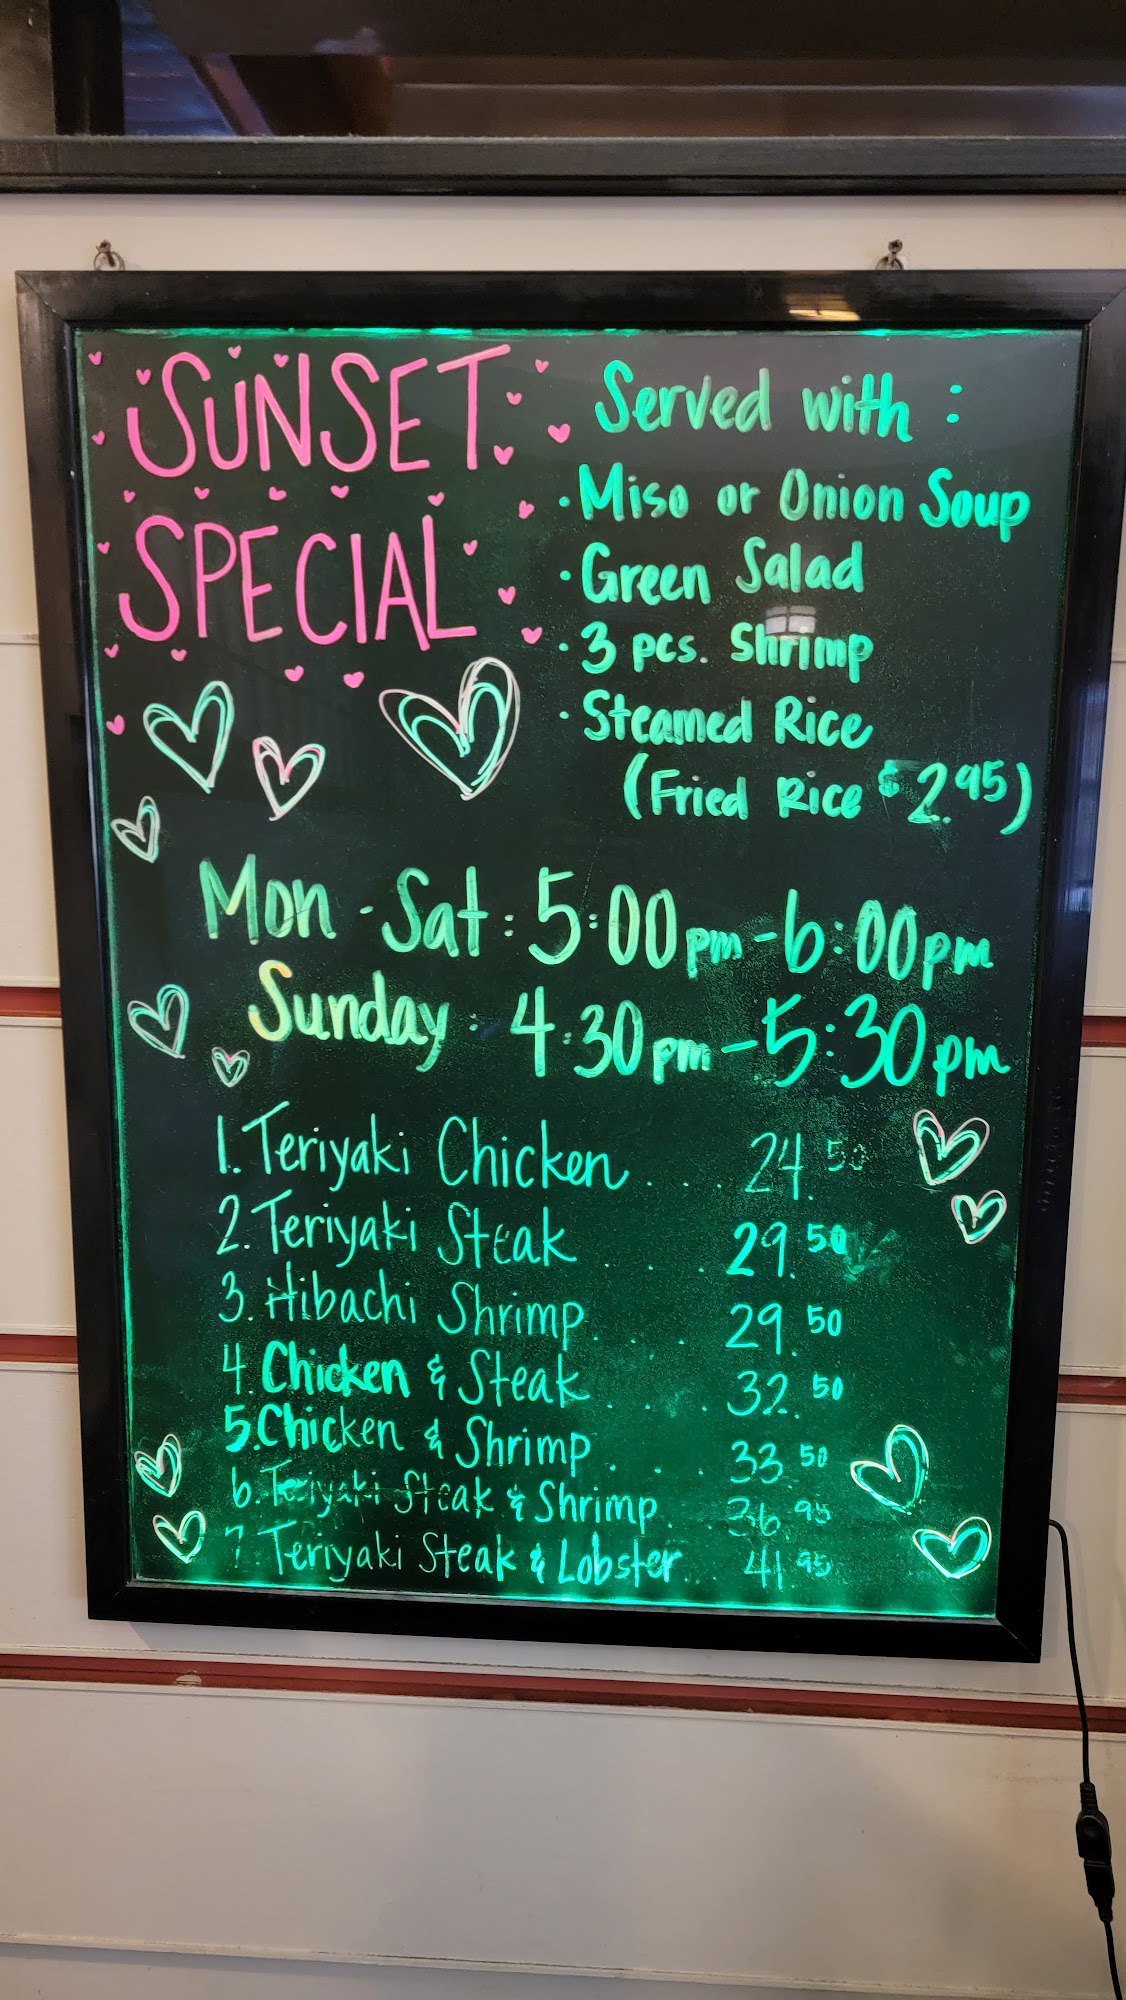 SUNSET
SPECIAL
Served with :
· Miso or Onion Soup
· Green Salad
· 3 pcs. Shrimp
· Steamed Rice
(Fried Rice $2.95)
Mon - Sat : 5:00pm - 6:00pm
Sunday : 4:30pm - 5:30pm
1. Teriyaki Chicken . . . 24.50
2. Teriyaki Steak . . . . 29.50
3. Hibachi Shrimp . . . . 29.50
4. Chicken & Steak . . . . 32.50
5. Chicken & Shrimp . . . 33.50
6. Teriyaki Steak & Shrimp . . 36.95
7. Teriyaki Steak & Lobster . . 41.95